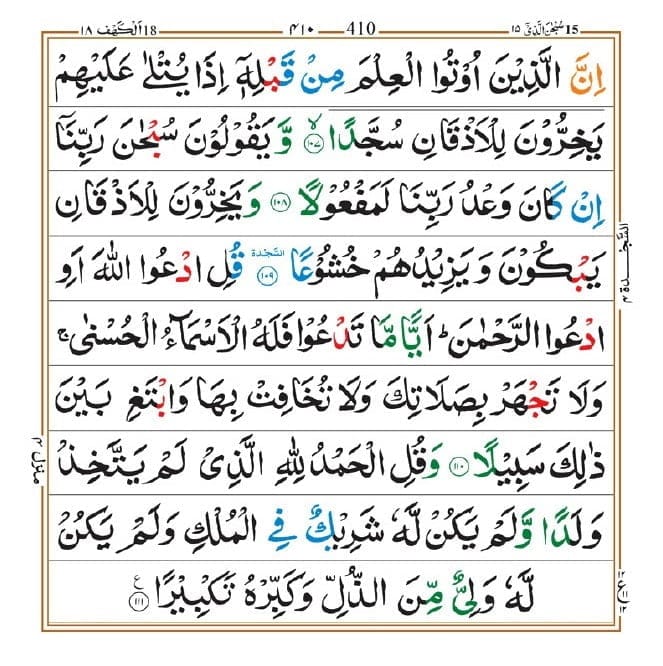 15 سُبۡحٰنَ الَّذِیۡۤ ۱۵
410 ۴۱۰
18 اَلۡکَهۡف ۱۸
اِنَّ الَّذِیۡنَ اُوۡتُوا الۡعِلۡمَ مِنۡ قَبۡلِهٖۤ اِذَا یُتۡلٰی عَلَیۡهِمۡ
یَخِرُّوۡنَ لِلۡاَذۡقَانِ سُجَّدًا ۙ‏﴿۱۰۷﴾ وَّ یَقُوۡلُوۡنَ سُبۡحٰنَ رَبِّنَاۤ
اِنۡ کَانَ وَعۡدُ رَبِّنَا لَمَفۡعُوۡلًا ﴿۱۰۸﴾ وَ یَخِرُّوۡنَ لِلۡاَذۡقَانِ
یَبۡکُوۡنَ وَ یَزِیۡدُهُمۡ خُشُوۡعًا السَّجْدَة ﴿۱۰۹﴾ قُلِ ادۡعُوا اللّٰهَ اَوِ
ادۡعُوا الرَّحۡمٰنَ ؕ اَیًّا مَّا تَدۡعُوۡا فَلَهُ الۡاَسۡمَآءُ الۡحُسۡنٰی ۚ
وَلَا تَجۡهَرۡ بِصَلَاتِكَ وَلَا تُخَافِتۡ بِهَا وَابۡتَغِ بَیۡنَ
ذٰلِكَ سَبِیۡلًا ﴿۱۱۰﴾ وَقُلِ الۡحَمۡدُ لِلّٰهِ الَّذِیۡ لَمۡ یَتَّخِذۡ
وَلَدًا وَّلَمۡ یَکُنۡ لَّهٗ شَرِیۡكٌ فِی الۡمُلۡكِ وَلَمۡ یَکُنۡ
لَّهٗ وَلِیٌّ مِّنَ الذُّلِّ وَکَبِّرۡهُ تَکۡبِیۡرًا ﴿۱۱۱﴾ ع
السَّجۡدة ۴
منزل ۴
ع ۱۲